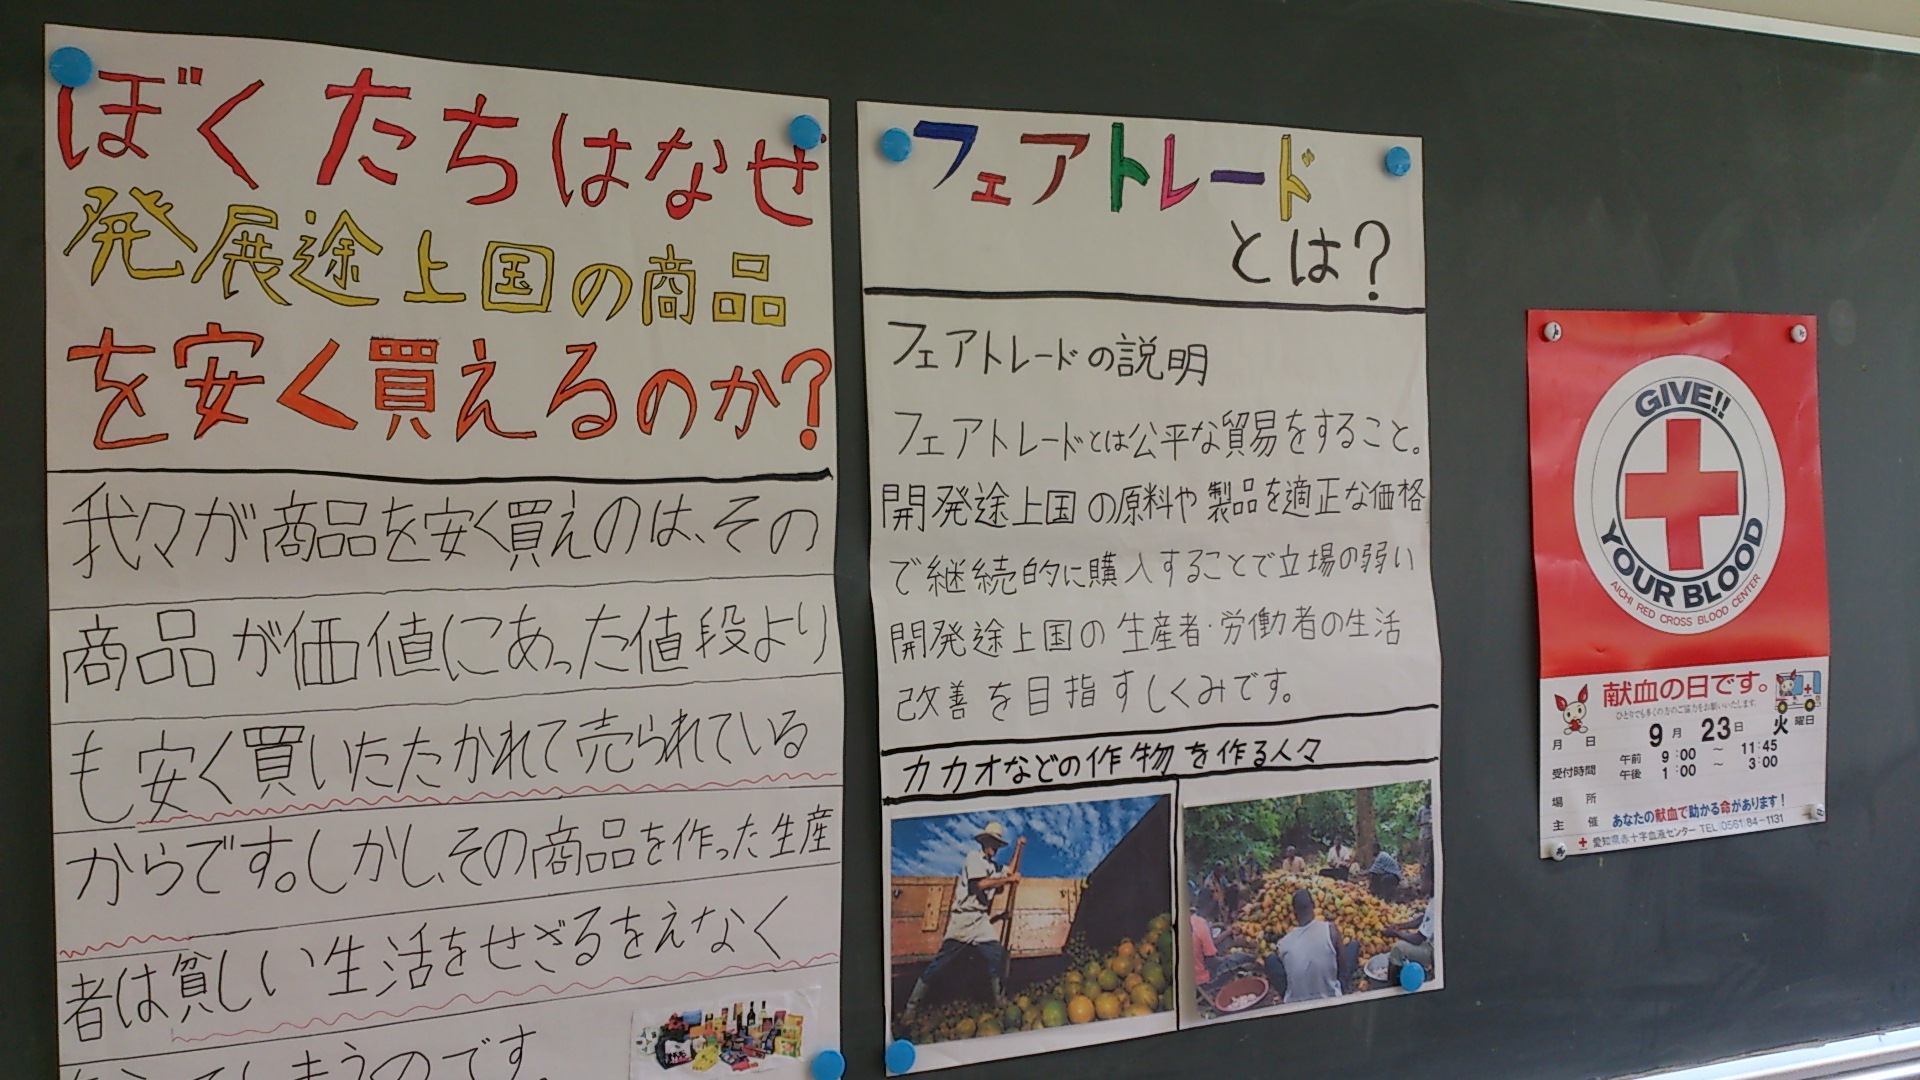 ぼくたちはなぜ
発展途上国の商品
を安く買えるのか?
我々が商品を安く買えのは、その
商品が価値にあった値段より
も安く買いたたかれて売られている
からです。しかし、その商品を作った生産
者は貧しい生活をせざるをえなく
てしまうのです。
フェアトレード
とは?
フェアトレードの説明
フェアトレードとは公平な貿易をすること。
開発途上国の原料や製品を適正な価格
で継続的に購入することで立場の弱い
開発途上国の生産者・労働者の生活
改善を目指すしくみです。
カカオなどの作物を作る人々
GIVE!!
YOUR BLOOD
AICHI RED CROSS BLOOD CENTER
献血の日です。
ひとりでも多くの方のご協力をお願いいたします。
月日 9月23日 火曜日
受付時間 午前 9:00 ~ 11:45
午後 1:00 ~ 3:00
場所
主催 あなたの献血で助かる命があります!
愛知県赤十字血液センター TEL(0561)84-1131